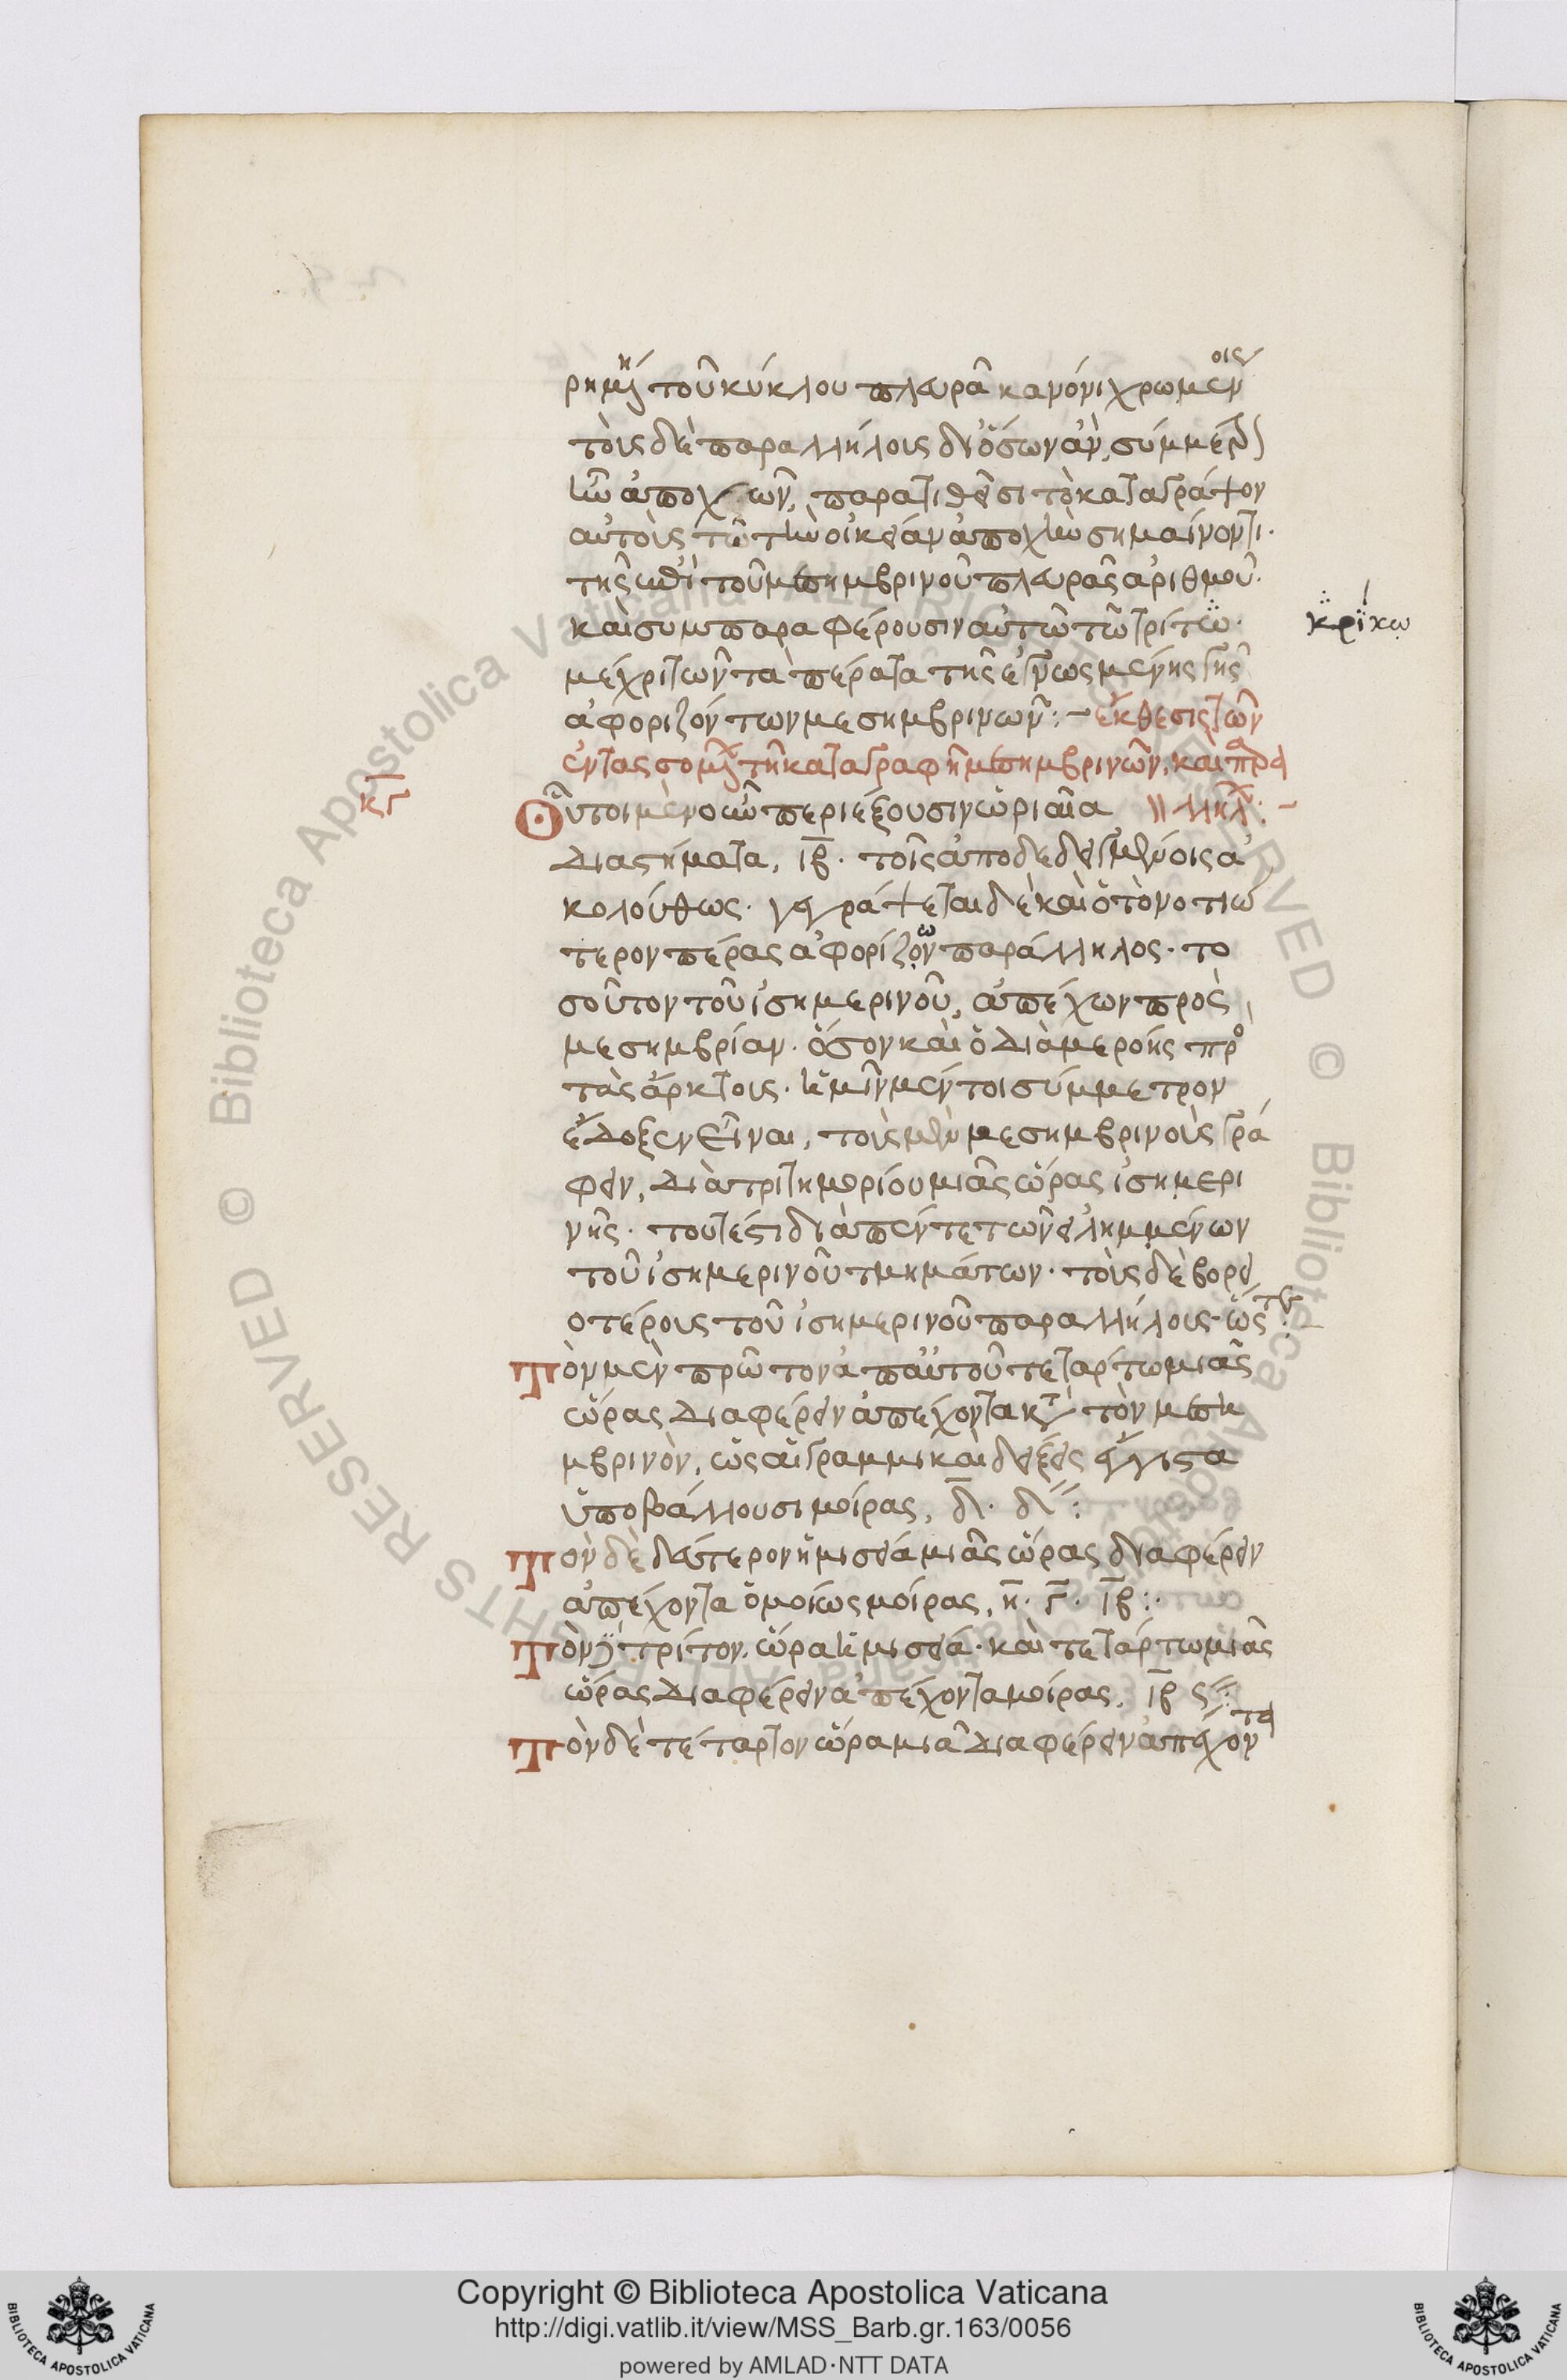 ρημένῃ τοῦ κύκλου πλευρᾷ κανόνι χρωμένοις
τοὺς δὲ παραλλήλους δι' ὅσων ἂν σύμμετρον
ἀποχ ων, παρατιθεῖσι τὸ καταγράψον
αὐτοὺς τῷ τὴν οἰκείαν ἀποχὴν σημαίνοντι.
τῆς ἐπὶ τοῦ μεσημβρινοῦ πλευρᾶς ἀριθμοῦ.
καὶ συμπαραφέρουσιν αὐτῶ τῶ τρίτω.
κρίκω
μέχρι τῶν τὰ πέρατα τῆς ἐγνωσμένης γῆς
ἀφοριζόντων μεσημβρινῶν:- ἔκθεσις τῶν
ἐντασσομένων τῆ καταγραφῆ μεσημβρινῶν, καὶ παρα
κγ
Οὗτοι μὲν οὖν περιέξουσιν ὡριαῖα λλήλων:-
διαστήματα, ιβ. τοῖς ἀποδεδειγμένοις ἀ
κολούθως. γεγράψεται δὲ καὶ ὁ τὸ νοτιώ
τερον πέρας ἀφορίζων παράλληλος. το
σοῦτον τοῦ ἰσημερινοῦ, ἀπέχων πρὸς
μεσημβρίαν. ὅσον καὶ ὁ διὰ μερόης πρὸ
τὰς ἄρκτους. ἡμῖν μέντοι σύμμετρον
ἔδοξεν εἶναι, τοὺς μὲν μεσημβρινοὺς γρά
φειν, διὰ τριτημορίου μιᾶς ὥρας ἰσημερι
νῆς. τουτέστι διὰ πέντε τῶν εἰλημμένων
τοῦ ἰσημερινοῦ τμημάτων. τοὺς δὲ βορει
οτέρους τοῦ ἰσημερινοῦ παραλλήλους. ὥστε:
Τὸν μὲν πρῶτον ἀπ' αὐτοῦ τετάρτω μιᾶς
ὥρας διαφέρειν ἀπέχοντα κατὰ τὸν μεση
μβρινὸν, ὡς αἱ γραμμικαὶ δείξεις ἔγγιστα
ὑποβάλλουσι μοίρας, δ. δ:
Τὸν δὲ δεύτερον ἡμισεία μιᾶς ὥρας διαφέρειν
ἀπέχοντα ὁμοίως μοίρας, η. γ. ιβ:
Τὸν δὲ τρίτον. ὥρα ἡμισεία. καὶ τετάρτω μιᾶς
ὥρας διαφέρειν ἀπέχοντα μοίρας, ιβ ς:
Τὸν δὲ τέταρτον ὥρα μιᾶ διαφέρειν ἀπέχοντα
Copyright © Biblioteca Apostolica Vaticana
http://digi.vatlib.it/view/MSS_Barb.gr.163/0056
powered by AMLAD·NTT DATA